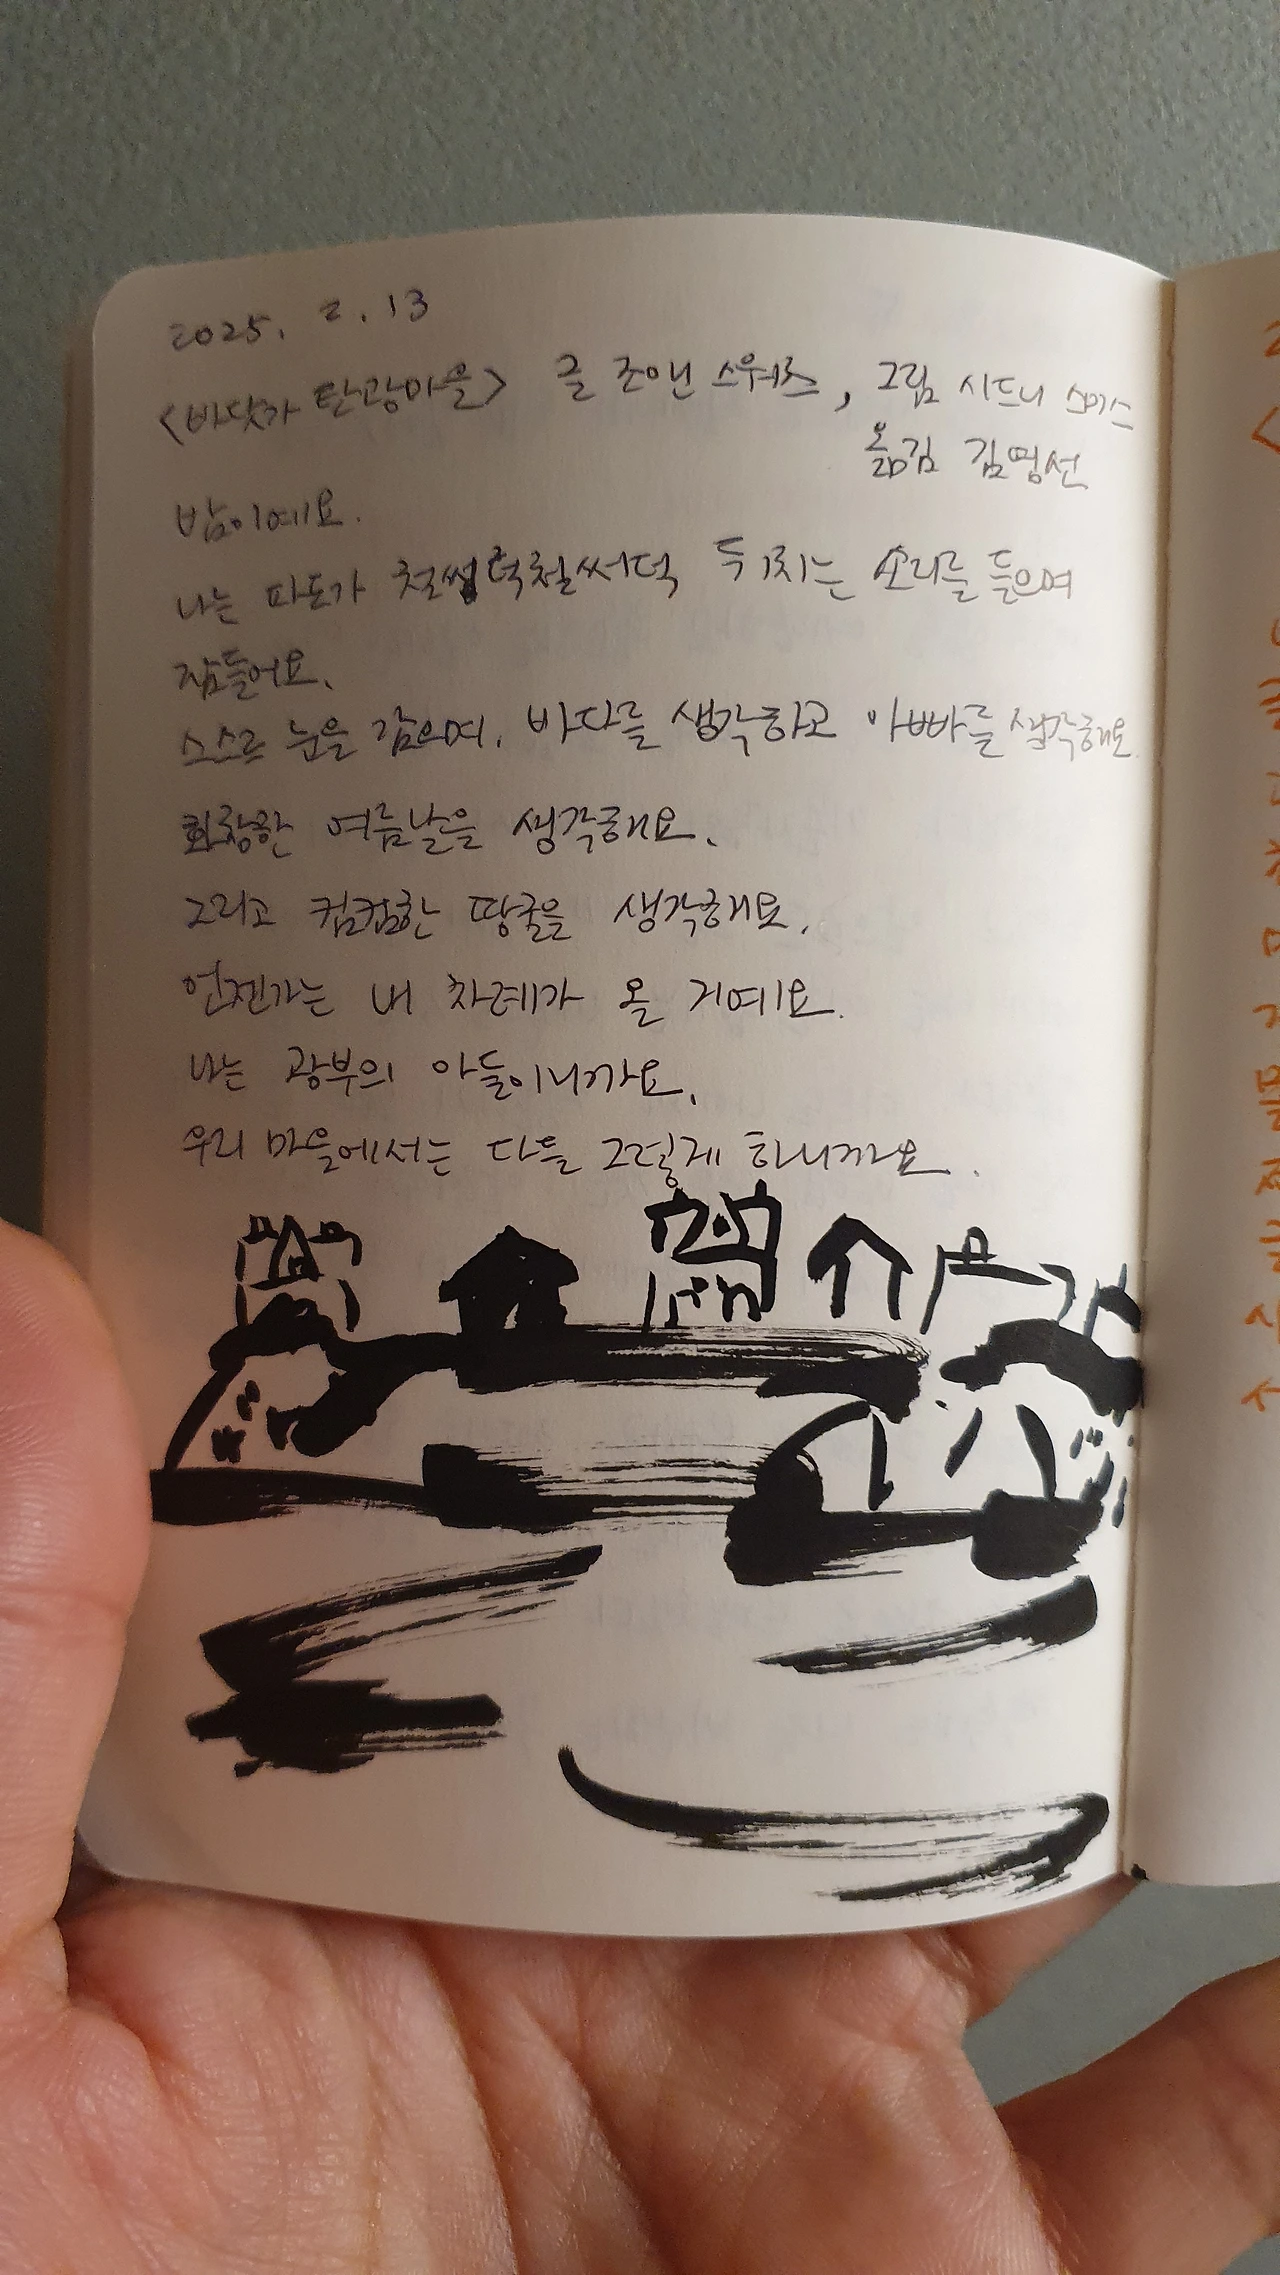 2025. 2. 13
<바닷가 탄광마을> 글 조앤 스워츠, 그림 시드니 스미스
옮김 김영선
밤이에요.
나는 파도가 철썩철써덕 뒤치는 소리를 들으며
잠들어요.
스스르 눈을 감으며, 바다를 생각하고 아빠를 생각해요.
화창한 여름날을 생각해요.
그리고 컴컴한 땅굴을 생각해요.
언젠가는 내 차례가 올 거예요.
나는 광부의 아들이니까요.
우리 마을에서는 다들 그렇게 하니까요.